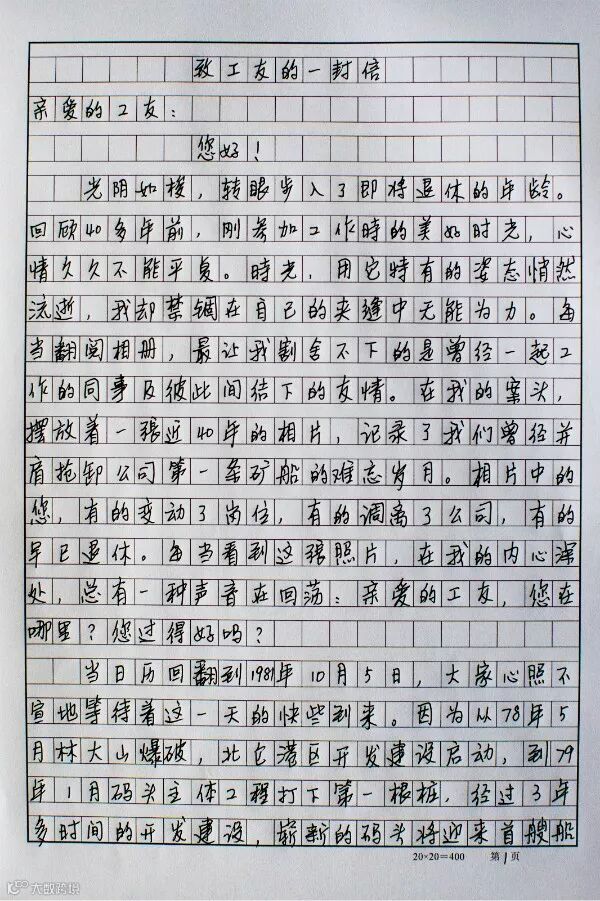 致工友的一封信
亲爱的工友：
您好！
光阴如梭，转眼步入了即将退休的年龄。
回顾40多年前，刚参加工作時的美好时光，心
情久久不能平复。時光，用它特有的姿态悄然
流逝，我却禁锢在自己的夹缝中无能为力。每
当翻阅相册，最让我割舍不下的是曾经一起工
作的同事及彼此间结下的友情。在我的案头，
摆放着一張近40年的相片，记录了我们曾经并
肩抢卸公司第一条矿船的难忘岁月。相片中的
您，有的变动了岗位，有的调离了公司，有的
早已退休。每当看到这張照片，在我的内心深
处，总有一种声音在回荡：亲爱的工友，您在
哪里？您过得好吗？
当日历回翻到1981年10月5日，大家心照不
宣地等待着这一天的快些到来。因为从78年5
月林大山爆破，北仑港区开发建设启动，到79
年1月码头主体工程打下第一根桩，经过3年
多时间的开发建设，崭新的码头将迎来首艘船
20×20=400 第1页
大数跨境